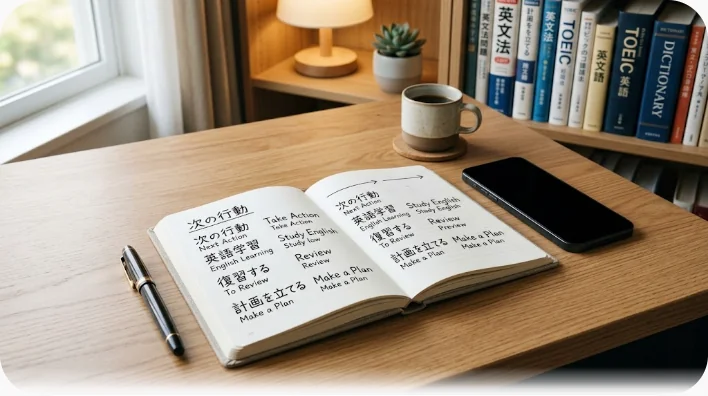 次の行動 Take Action
Take Action
次の行動
Next Action
英語学習 Study English
English Learning Study low
復習する Review
To Review Review
計画を立てる Make a Plan
Make a Plan Make a Plan
次の行動
Next Action
英語学習 Study English
English Learning Study English
復習する Review
To Review Preview
計画を立てる Make a Plan
Make a Plan Make a Plan
英文法
TOEIC
英英語
TOEIC 英語
DICTIONARY